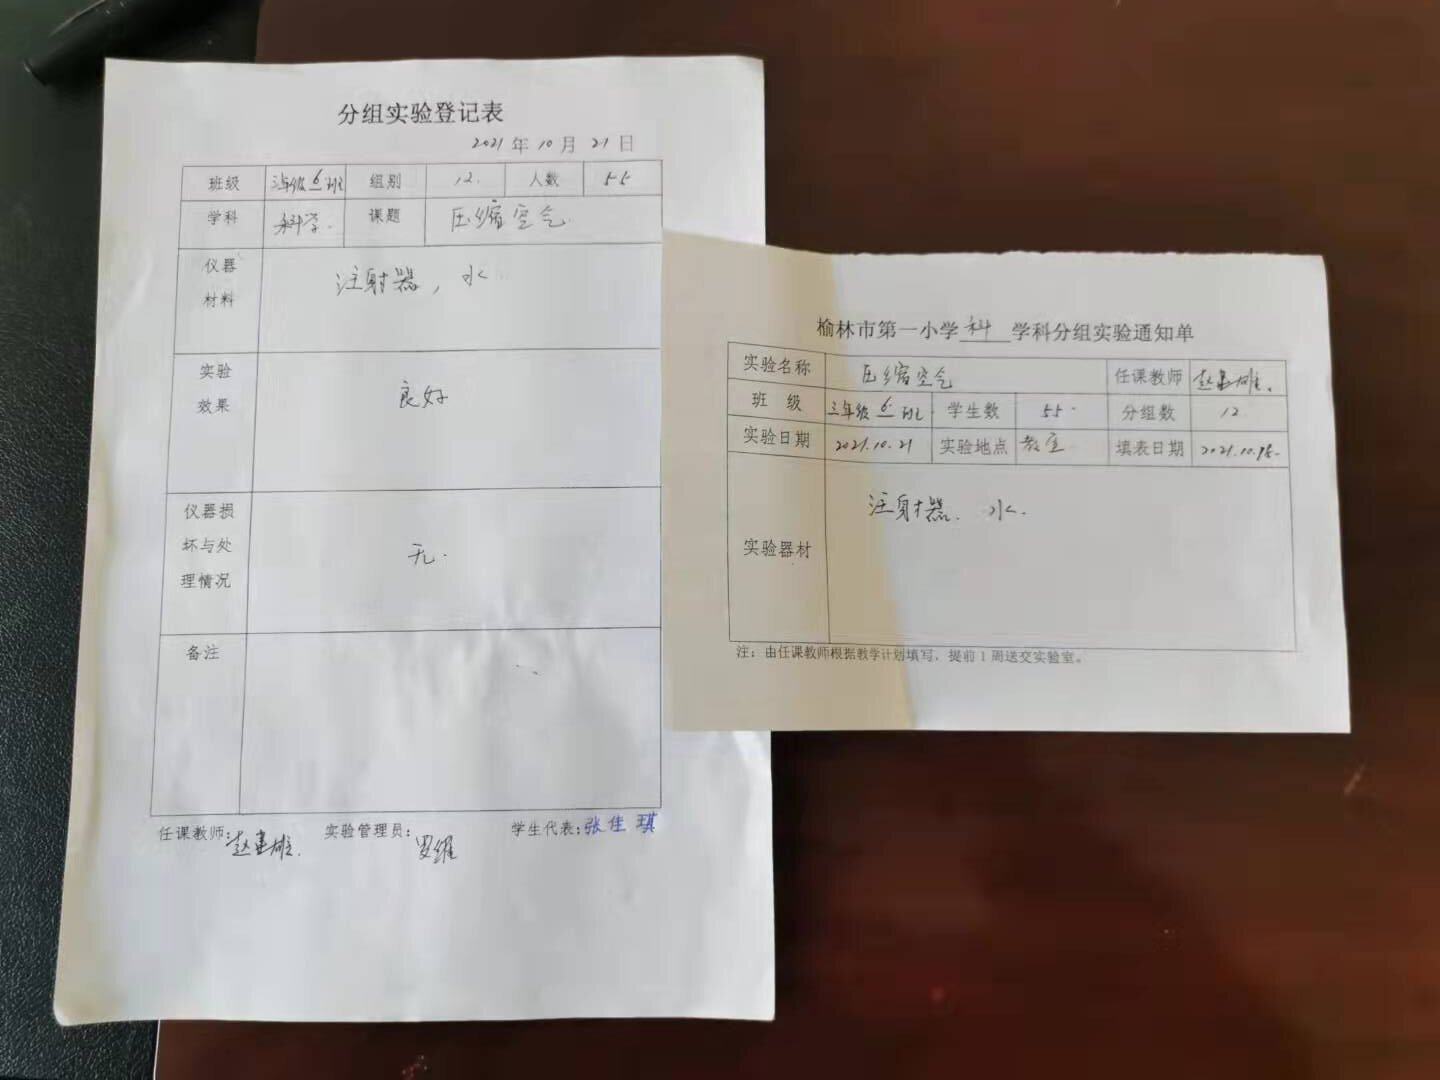 分组实验登记表
2021年10月21日
班级 三年级6班 组别 12. 人数 55
学科 科学. 课题 压缩空气.
仪器材料 注射器，水
实验效果 良好
仪器损坏与处理情况 无.
备注
任课教师: 实验管理员: 罗维 学生代表: 张佳琪
榆林市第一小学科学科分组实验通知单
实验名称 压缩空气 任课教师
班 级 三年级6班 学生数 55 分组数 12
实验日期 2021.10.21 实验地点 教室 填表日期
实验器材 注射器. 水.
注：由任课教师根据教学计划填写，提前1周送交实验室。